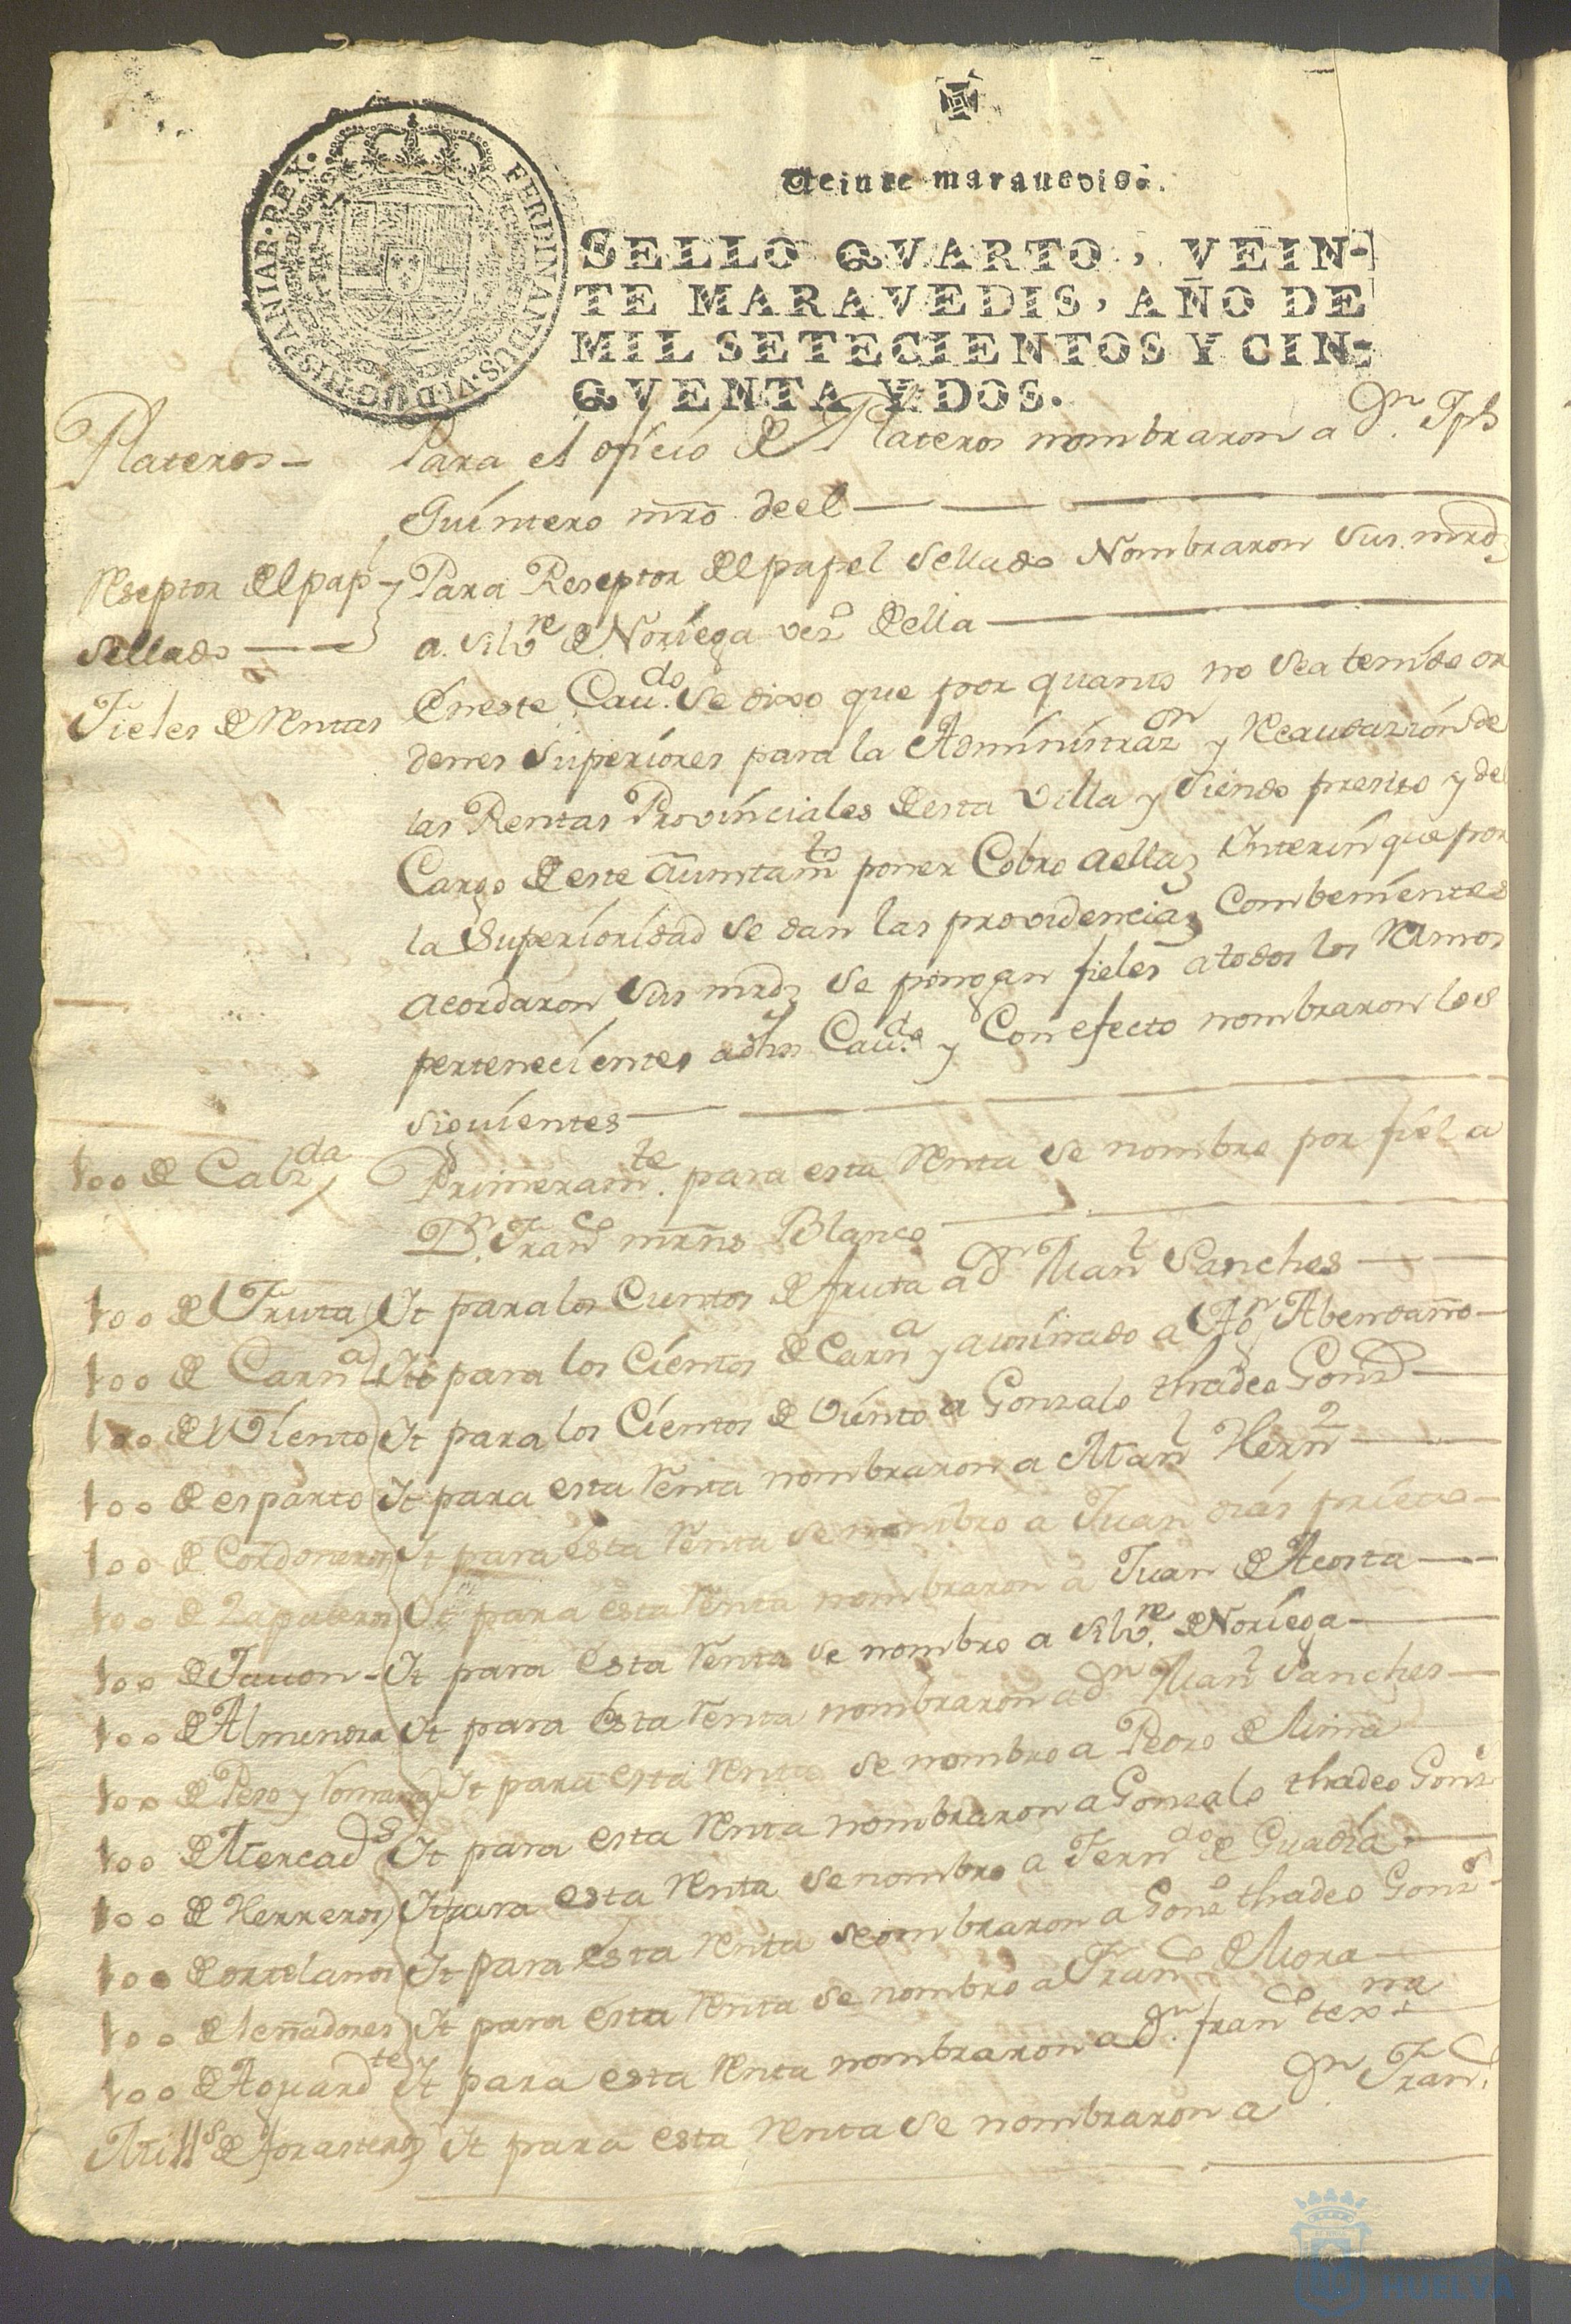 Veinte maravedis.
SELLO QVARTO, VEIN-
TE MARAVEDIS, AÑO DE
MIL SETECIENTOS Y CIN-
QVENTA Y DOS.
FERDINANDUS·VI·D·G·HISPANIAR·REX·
Plateros — Para el ofício de Plateros nombraron a Dn. Jph
Quíntero mro. deel —
Reseptor del pap Para Reseptor del papel Sellado Nombraron Sus. mrds
Sellado — — a. Silvre de Noríega vezo. della —
Fieles de Rentas Eneste Cavdo. Se dixo que por quanto no Sea tenído or
denes Superíores para la Admínístrazon y Recaudazíon de
las Rentas Províncíales desta Villa y Siendo presiso y de
Cargo de este aiuntamto poner Cobro aellas Ynterín que por
la Superíorídad Se dan las providencias Combeníentes
acordaron Sus mrds Se pongan fieles a todos los Ramos
pertenecíentes adho Cavdo y Con efecto nombraron los
Siguíentes —
100 de Primeramte. para esta Renta Se nombro por fiel a
Dn. Franco mrns Blanco
100 de Fruta Yt para los Cientos de fruta a Dn Manl Sanches —
100 de Carna Yt para los Cíentos de Carna y a Abendaño —
100 de Víento Yt para los Cíentos de Víento a Gonzalo thadeo Gonz —
100 de esparto Yt para esta Renta nombraron a Manl Hernz —
100 de Cordoneros Yt para esta Renta se nombro a Juan dias príeto —
100 de Zapateros Yt para esta Renta nombraron a Juan de Acosta —
100 de Javon - Yt para esta Renta se nombro a Silvre. de Noríega —
100 de Almendra Yt para Esta Renta nombraron a Dn Manl Sanches —
100 de Peso y Romana Yt para esta Renta se nombro a Pedro de
100 de Mercads Yt para esta Renta nombraron a Gonzalo thadeo Gonz
100 de Herreros Yt para esta Renta se nombro a Ferndo de Guadía —
100 de ortelanos Yt para esta Renta se ombraron a Gono thadeo Gonz
100 de leñadores Yt para esta Renta Se nombro a Franco de Mora —
100 de Aguardte Yt para esta Renta nombraron a Dn. franco
de forasteros Yt para esta Renta Se nombraron a Dn Franco.
HUELVA